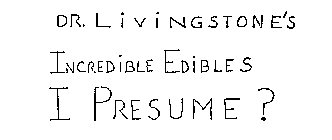 DR. LiViNGSTONE'S
INCREDIBLE EDIBLES
I PRESUME?